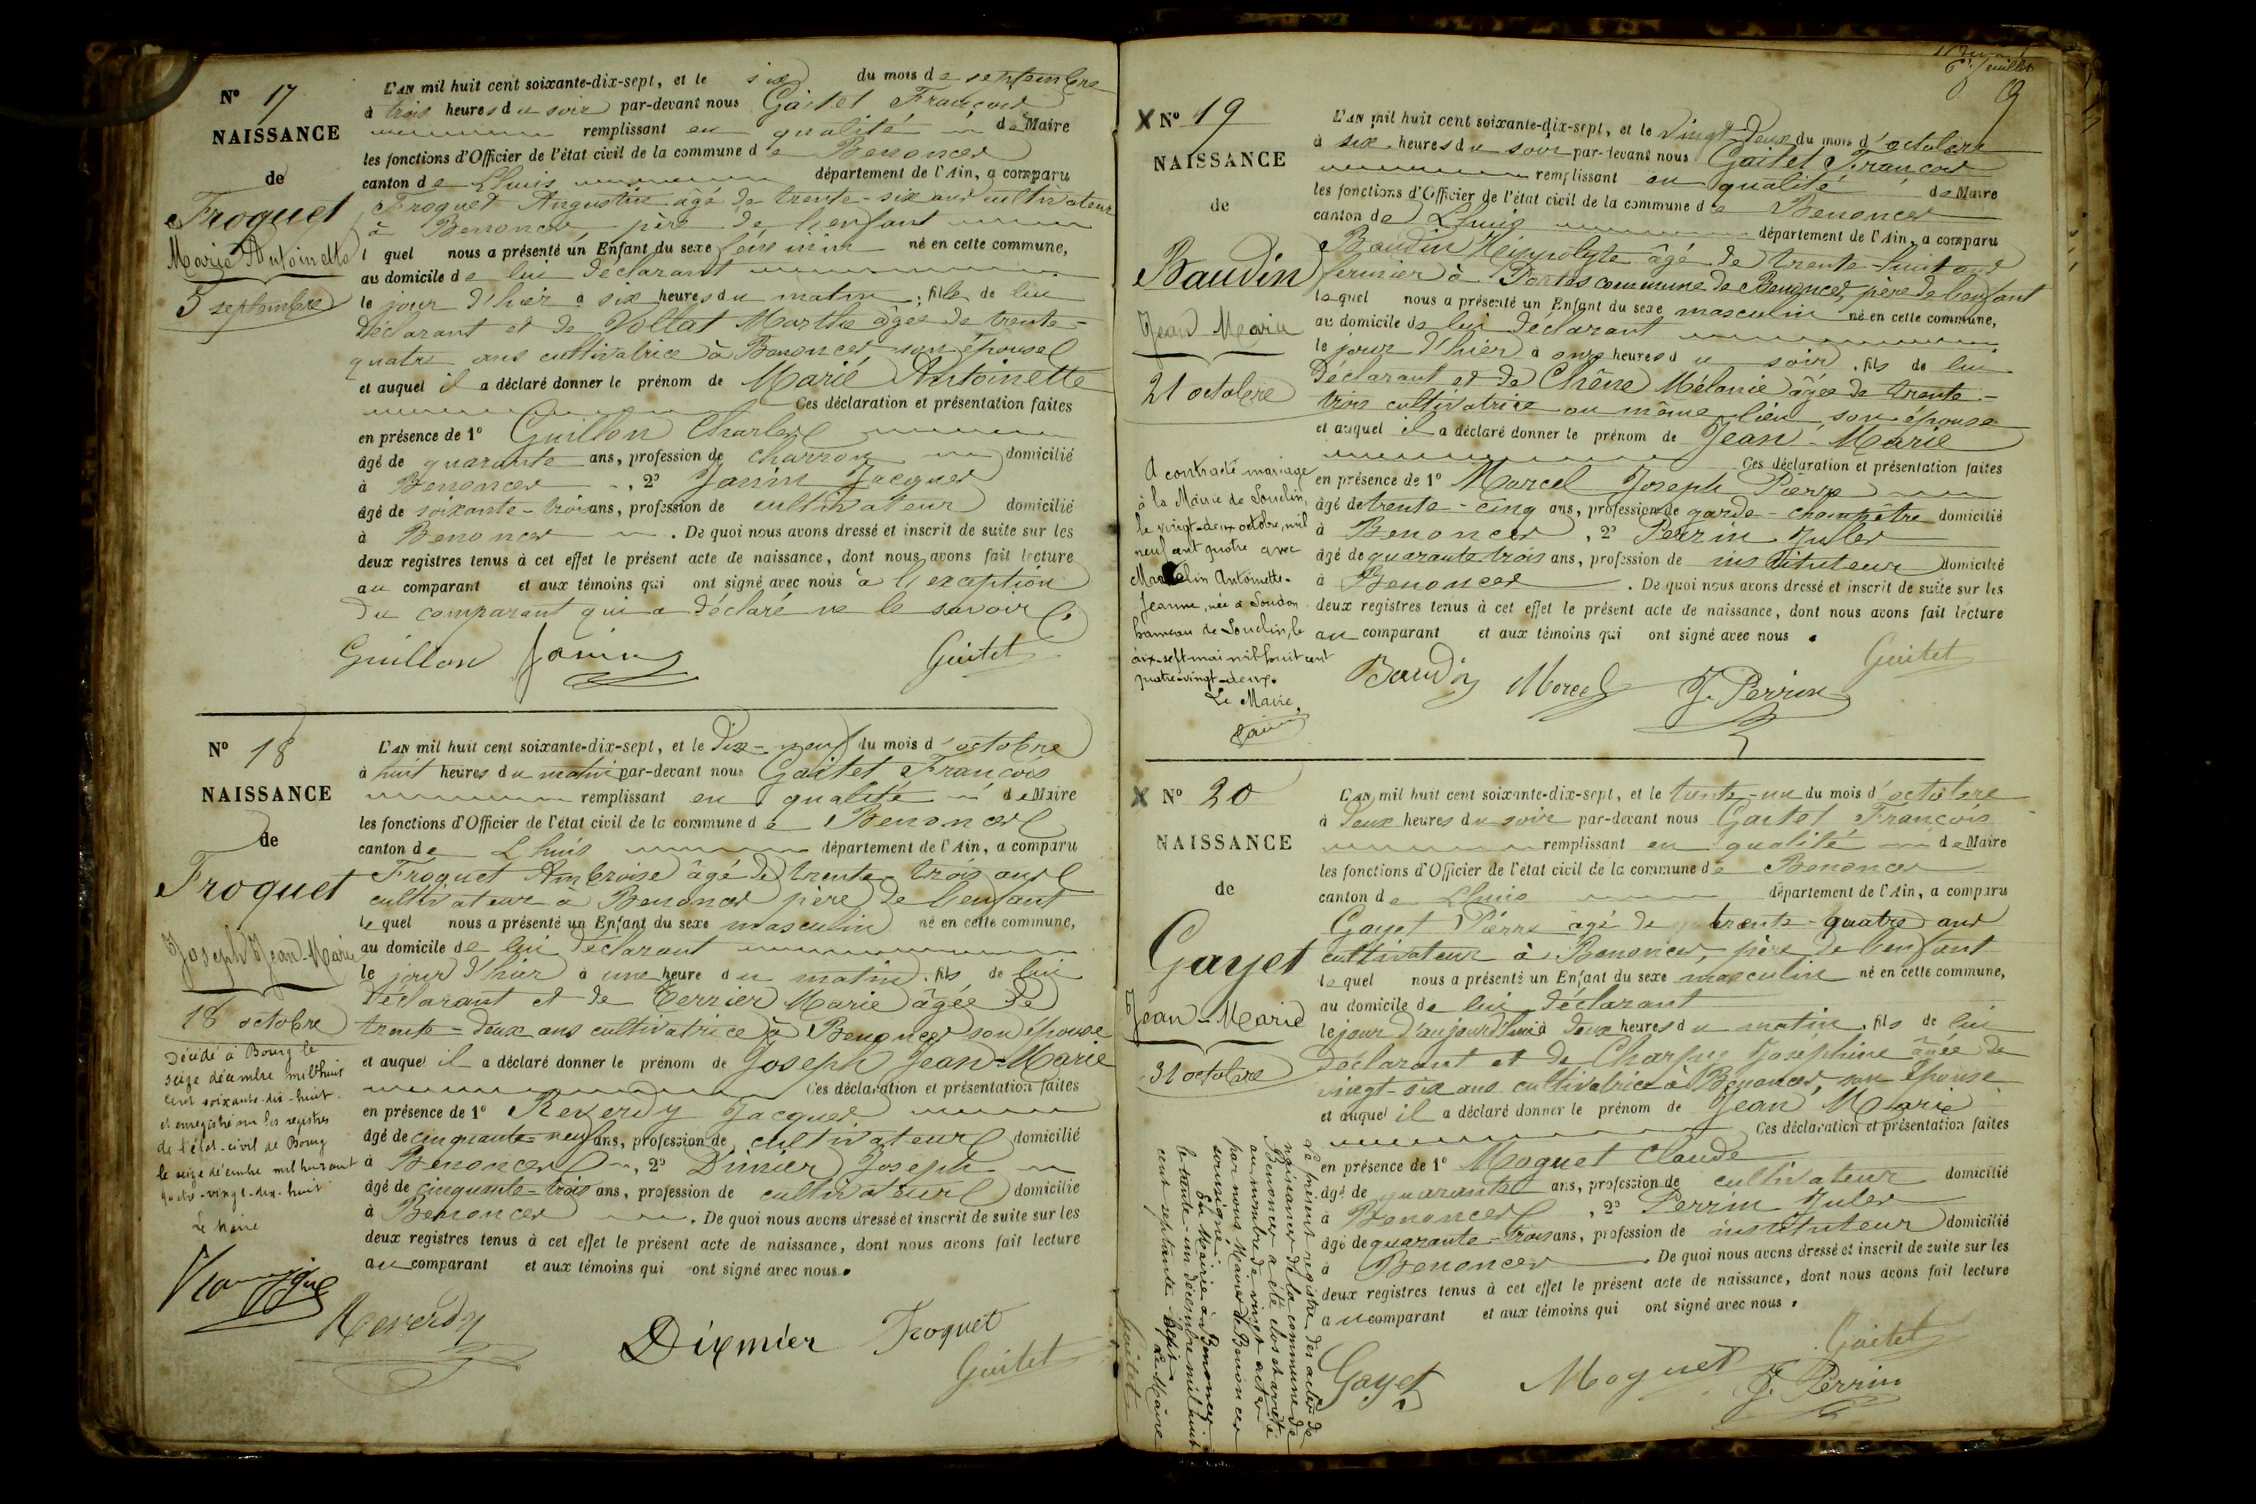 N° 17
NAISSANCE
de
Froquet
Marie Antoinette
5 septembre
L'AN mil huit cent soixante-dix-sept, et le six du mois de septembre
à trois heures du soir par-devant nous Gaitet François
remplissant en qualité de Maire
les fonctions d'Officier de l'état civil de la commune de Benonces
canton de Lhuis département de l'Ain, a comparu
Froquet Augustin âgé de trente-six ans cultivateur
à Benonces père de l'enfant
lequel nous a présenté un Enfant du sexe féminin né en cette commune,
au domicile de lui déclarant
le jour d'hier à six heures du matin, fille de lui
déclarant et de Vollat Marthe âgée de trente-
quatre ans cultivatrice à Benonces son épouse
et auquel il a déclaré donner le prénom de Marie Antoinette
Ces déclaration et présentation faites
en présence de 1° Guillon Charles
âgé de quarante ans, profession de charron domicilié
à Benonces, 2° Janin Jacques
âgé de soixante-trois ans, profession de cultivateur domicilié
à Benonces. De quoi nous avons dressé et inscrit de suite sur les
deux registres tenus à cet effet le présent acte de naissance, dont nous avons fait lecture
au comparant et aux témoins qui ont signé avec nous à l'exception
du comparant qui a déclaré ne le savoir.
Guillon Janin Gaitet
N° 18
NAISSANCE
de
Froquet
Joseph Jean-Marie
18 octobre
Décédé à Bourg le
seize décembre mil huit
cent soixante-dix-huit
et enregistré sur les registres
de l'état-civil de Bourg
le seize décembre mil huit cent
quatre-vingt-dix-huit
Le Maire
L'AN mil huit cent soixante-dix-sept, et le dix-neuf du mois d'octobre
à huit heures du matin par-devant nous Gaitet François
remplissant en qualité de Maire
les fonctions d'Officier de l'état civil de la commune de Benonces
canton de Lhuis département de l'Ain, a comparu
Froquet Ambroise âgé de trente-trois ans
cultivateur à Benonces père de l'enfant
lequel nous a présenté un Enfant du sexe masculin né en cette commune,
au domicile de lui déclarant
le jour d'hier à une heure du matin, fils de lui
déclarant et de Terrier Marie âgée de
trente-deux ans cultivatrice à Benonces son épouse
et auquel il a déclaré donner le prénom de Joseph Jean-Marie
Ces déclaration et présentation faites
en présence de 1° Reverdy Jacques
âgé de cinquante-neuf ans, profession de cultivateur domicilié
à Benonces, 2° Dimier Joseph
âgé de cinquante-trois ans, profession de cultivateur domicilié
à Benonces. De quoi nous avons dressé et inscrit de suite sur les
deux registres tenus à cet effet le présent acte de naissance, dont nous avons fait lecture
au comparant et aux témoins qui ont signé avec nous.
Reverdy Dixmier Froquet
Gaitet
6e feuillet
9
N° 19
NAISSANCE
de
Baudin
Jean Marie
21 octobre
A contracté mariage
à la Mairie de Souclin,
le vingt-deux octobre, mil
neuf cent quatre avec
Marcelin Antoinette-
Jeanne, née à Soudon
hameau de Souclin, le
dix-sept mai mil huit cent
quatre-vingt-deux.
Le Maire,
L'AN mil huit cent soixante-dix-sept, et le vingt-deux du mois d'octobre
à six heures du soir par-devant nous Gaitet François
remplissant en qualité de Maire
les fonctions d'Officier de l'état civil de la commune de Benonces
canton de Lhuis département de l'Ain, a comparu
Baudin Hippolyte âgé de trente-huit ans
fermier à Portes commune de Benonces, père de l'enfant
lequel nous a présenté un Enfant du sexe masculin né en cette commune,
au domicile de lui déclarant
le jour d'hier à onze heures du soir, fils de lui
déclarant et de Chêne Mélanie âgée de trente-
trois cultivatrice au même lieu, son épouse
et auquel il a déclaré donner le prénom de Jean-Marie
Ces déclaration et présentation faites
en présence de 1° Marcel Joseph Pierre
âgé de trente-cinq ans, profession de garde-champêtre domicilié
à Benonces, 2° Perrin Jules
âgé de quarante-trois ans, profession de instituteur domicilié
à Benonces. De quoi nous avons dressé et inscrit de suite sur les
deux registres tenus à cet effet le présent acte de naissance, dont nous avons fait lecture
au comparant et aux témoins qui ont signé avec nous.
Baudin Marcel J. Perrin Gaitet
N° 20
NAISSANCE
de
Gayet
Jean-Marie
31 octobre
L'AN mil huit cent soixante-dix-sept, et le trente-un du mois d'octobre
à deux heures du soir par-devant nous Gaitet François
remplissant en qualité de Maire
les fonctions d'Officier de l'état civil de la commune de Benonces
canton de Lhuis département de l'Ain, a comparu
Gayet Pierre âgé de trente-quatre ans
cultivateur à Benonces, père de l'enfant
lequel nous a présenté un Enfant du sexe masculin né en cette commune,
au domicile de lui déclarant
le jour d'aujourd'hui à deux heures du matin, fils de lui
déclarant et de Joséphine âgée de
vingt-six ans cultivatrice à Benonces, son épouse
et auquel il a déclaré donner le prénom de Jean Marie
Ces déclaration et présentation faites
en présence de 1° Moguet Claude
âgé de quarante ans, profession de cultivateur domicilié
à Benonces, 2° Perrin Jules
âgé de quarante-trois ans, profession de instituteur domicilié
à Benonces. De quoi nous avons dressé et inscrit de suite sur les
deux registres tenus à cet effet le présent acte de naissance, dont nous avons fait lecture
au comparant et aux témoins qui ont signé avec nous.
Gayet Moguet Gaitet
J. Perrin
Le présent registre des actes de
naissances de la commune de
Benonces a été clos et arrêté
au nombre de vingt actes
par nous Maire de Benonces
soussigné.
En Mairie à Benonces
le trente-un décembre mil huit
cent septante-sept.
Le Maire
Gaitet